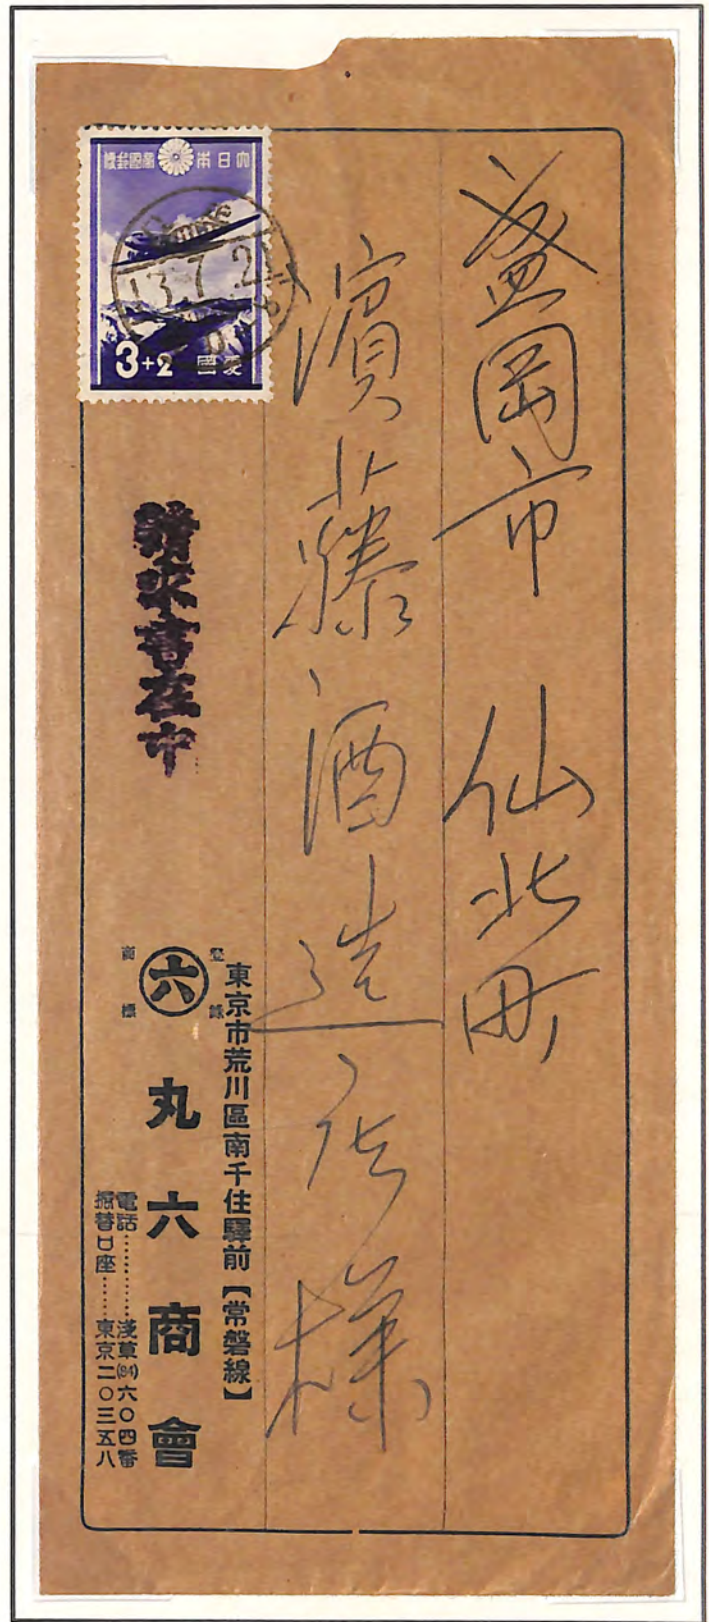 盛岡市 仙北町
濱藤酒造店様
大日本帝國郵便
3+2 愛國
13.7.2
請求書在中
登錄
商標
六
東京市荒川區南千住驛前【常磐線】
丸六商會
電話…………淺草(84)六〇四番
振替口座……東京二〇三五八